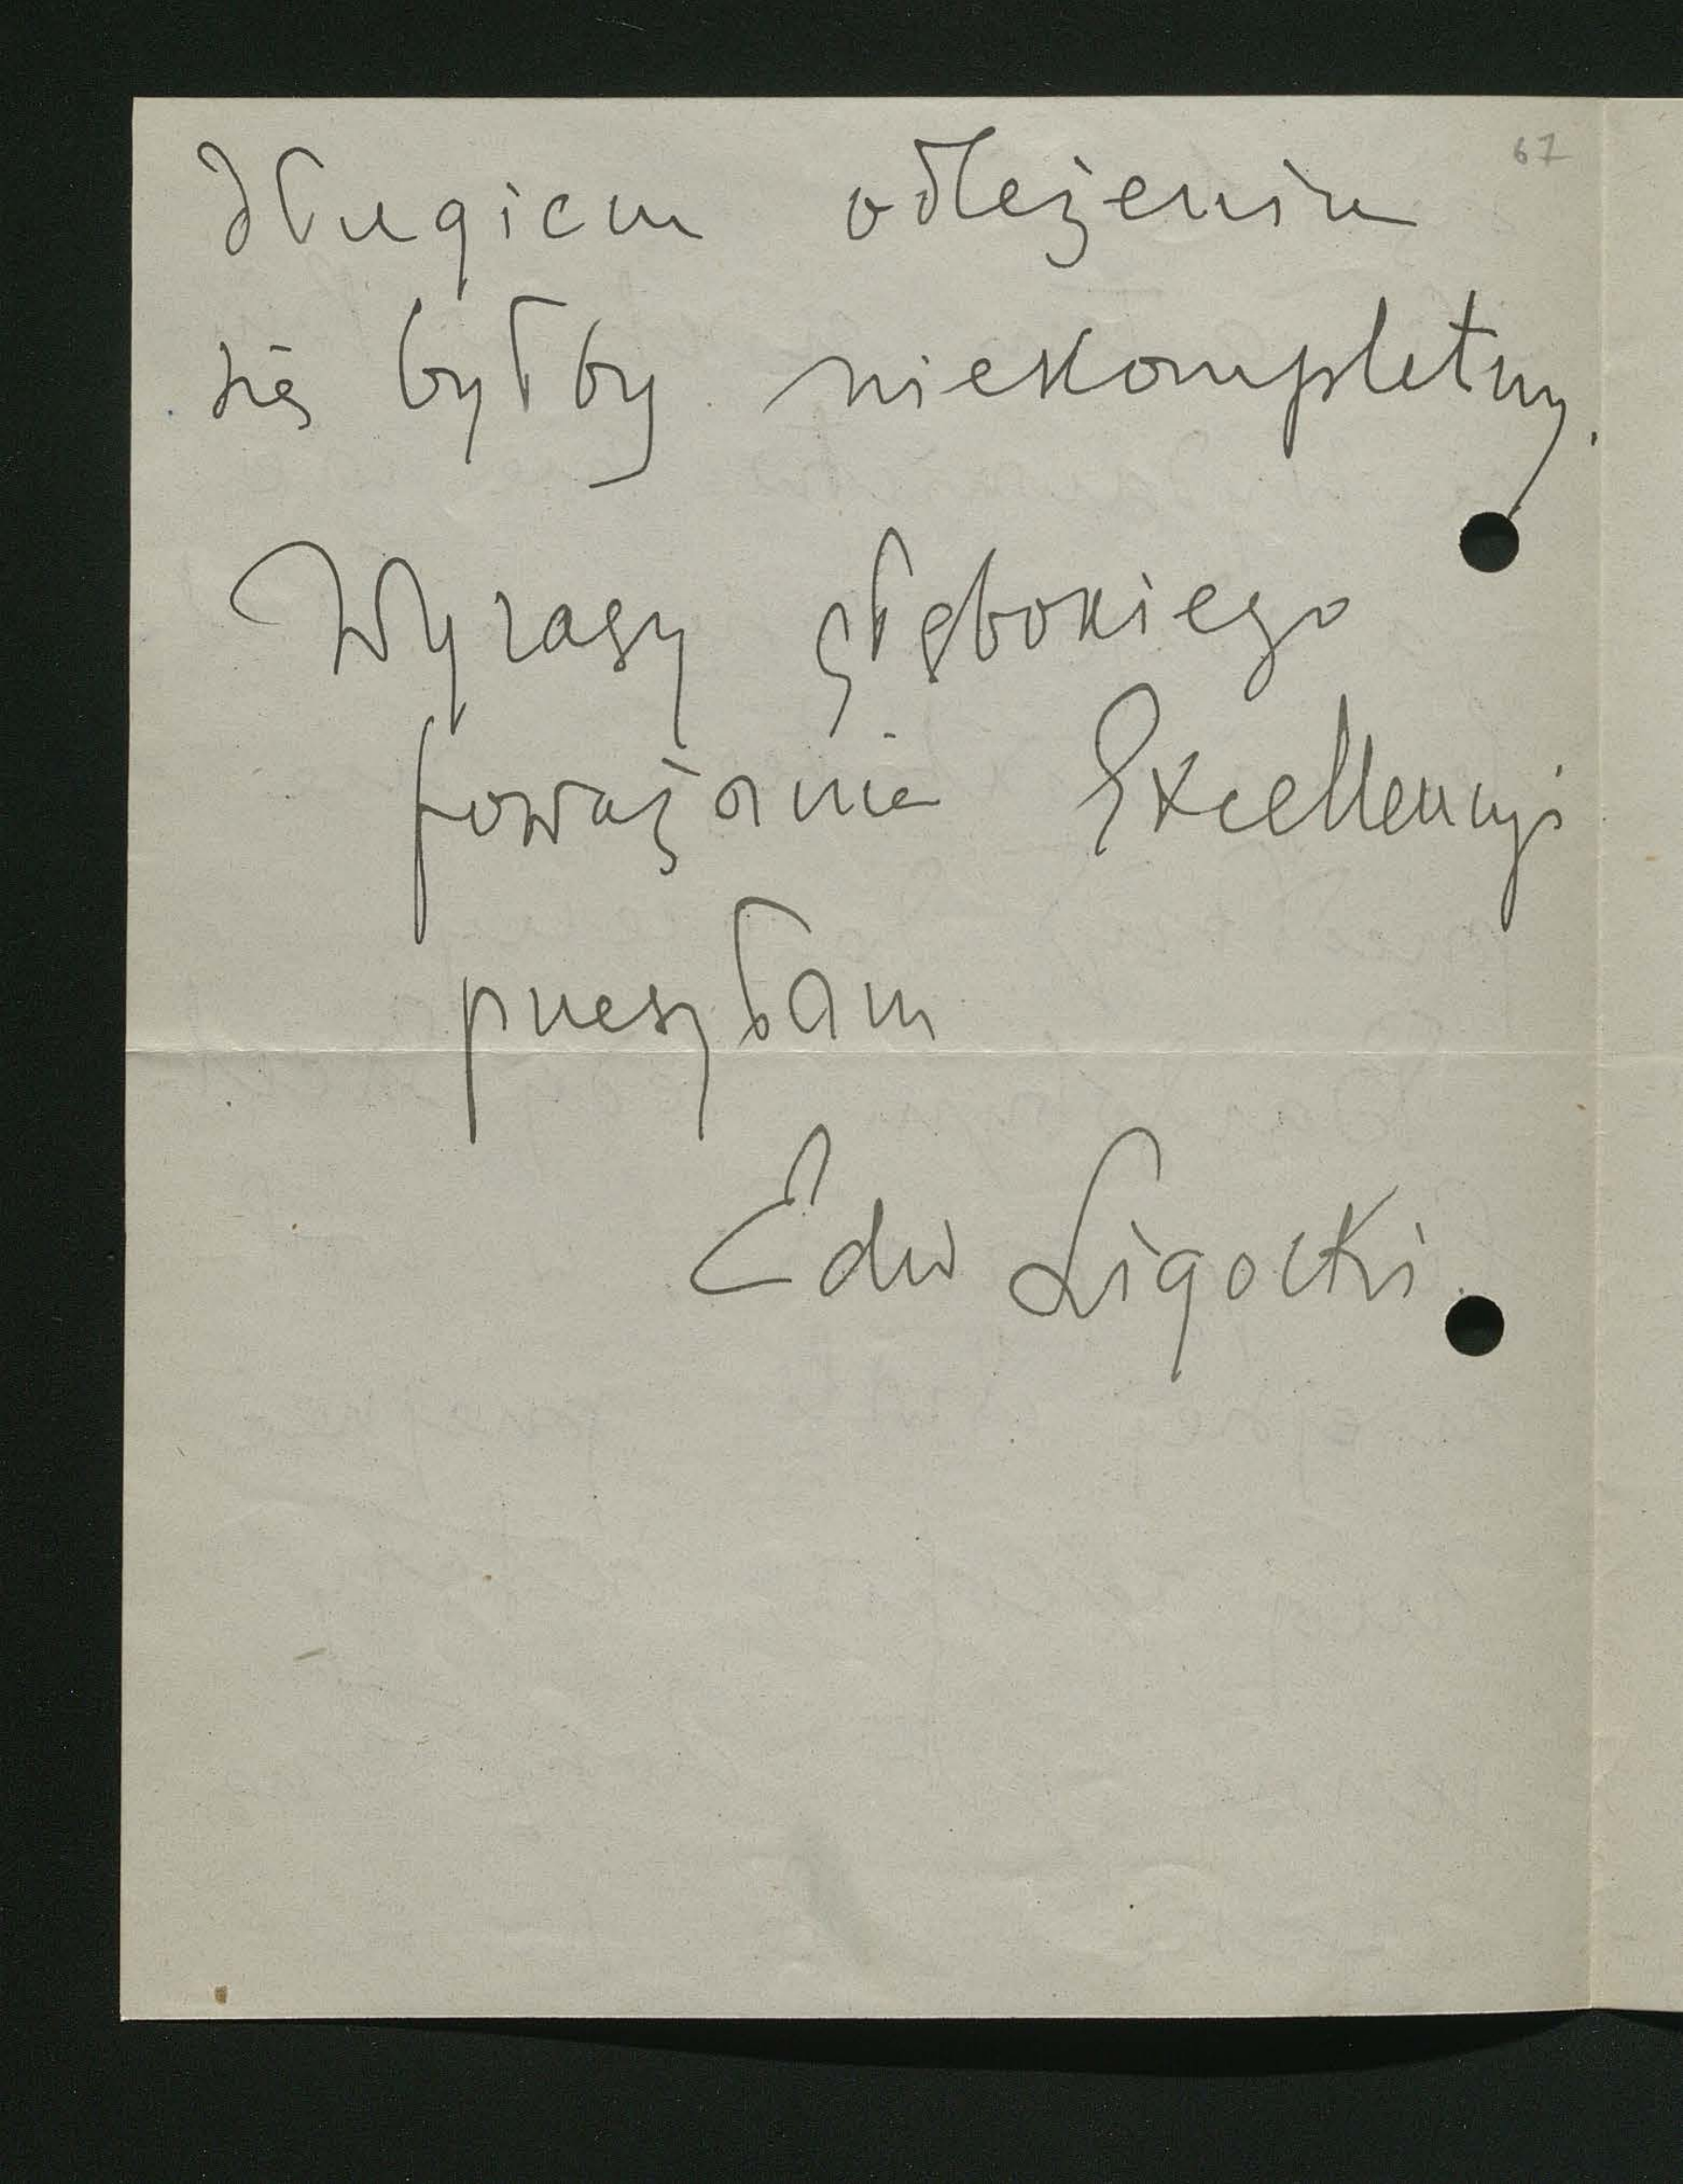 67
długiem odleżeniu
się byłby niekompletny.
Wyrazy głębokiego
poważania Excellencyi
przesyłam
Edw Ligocki.